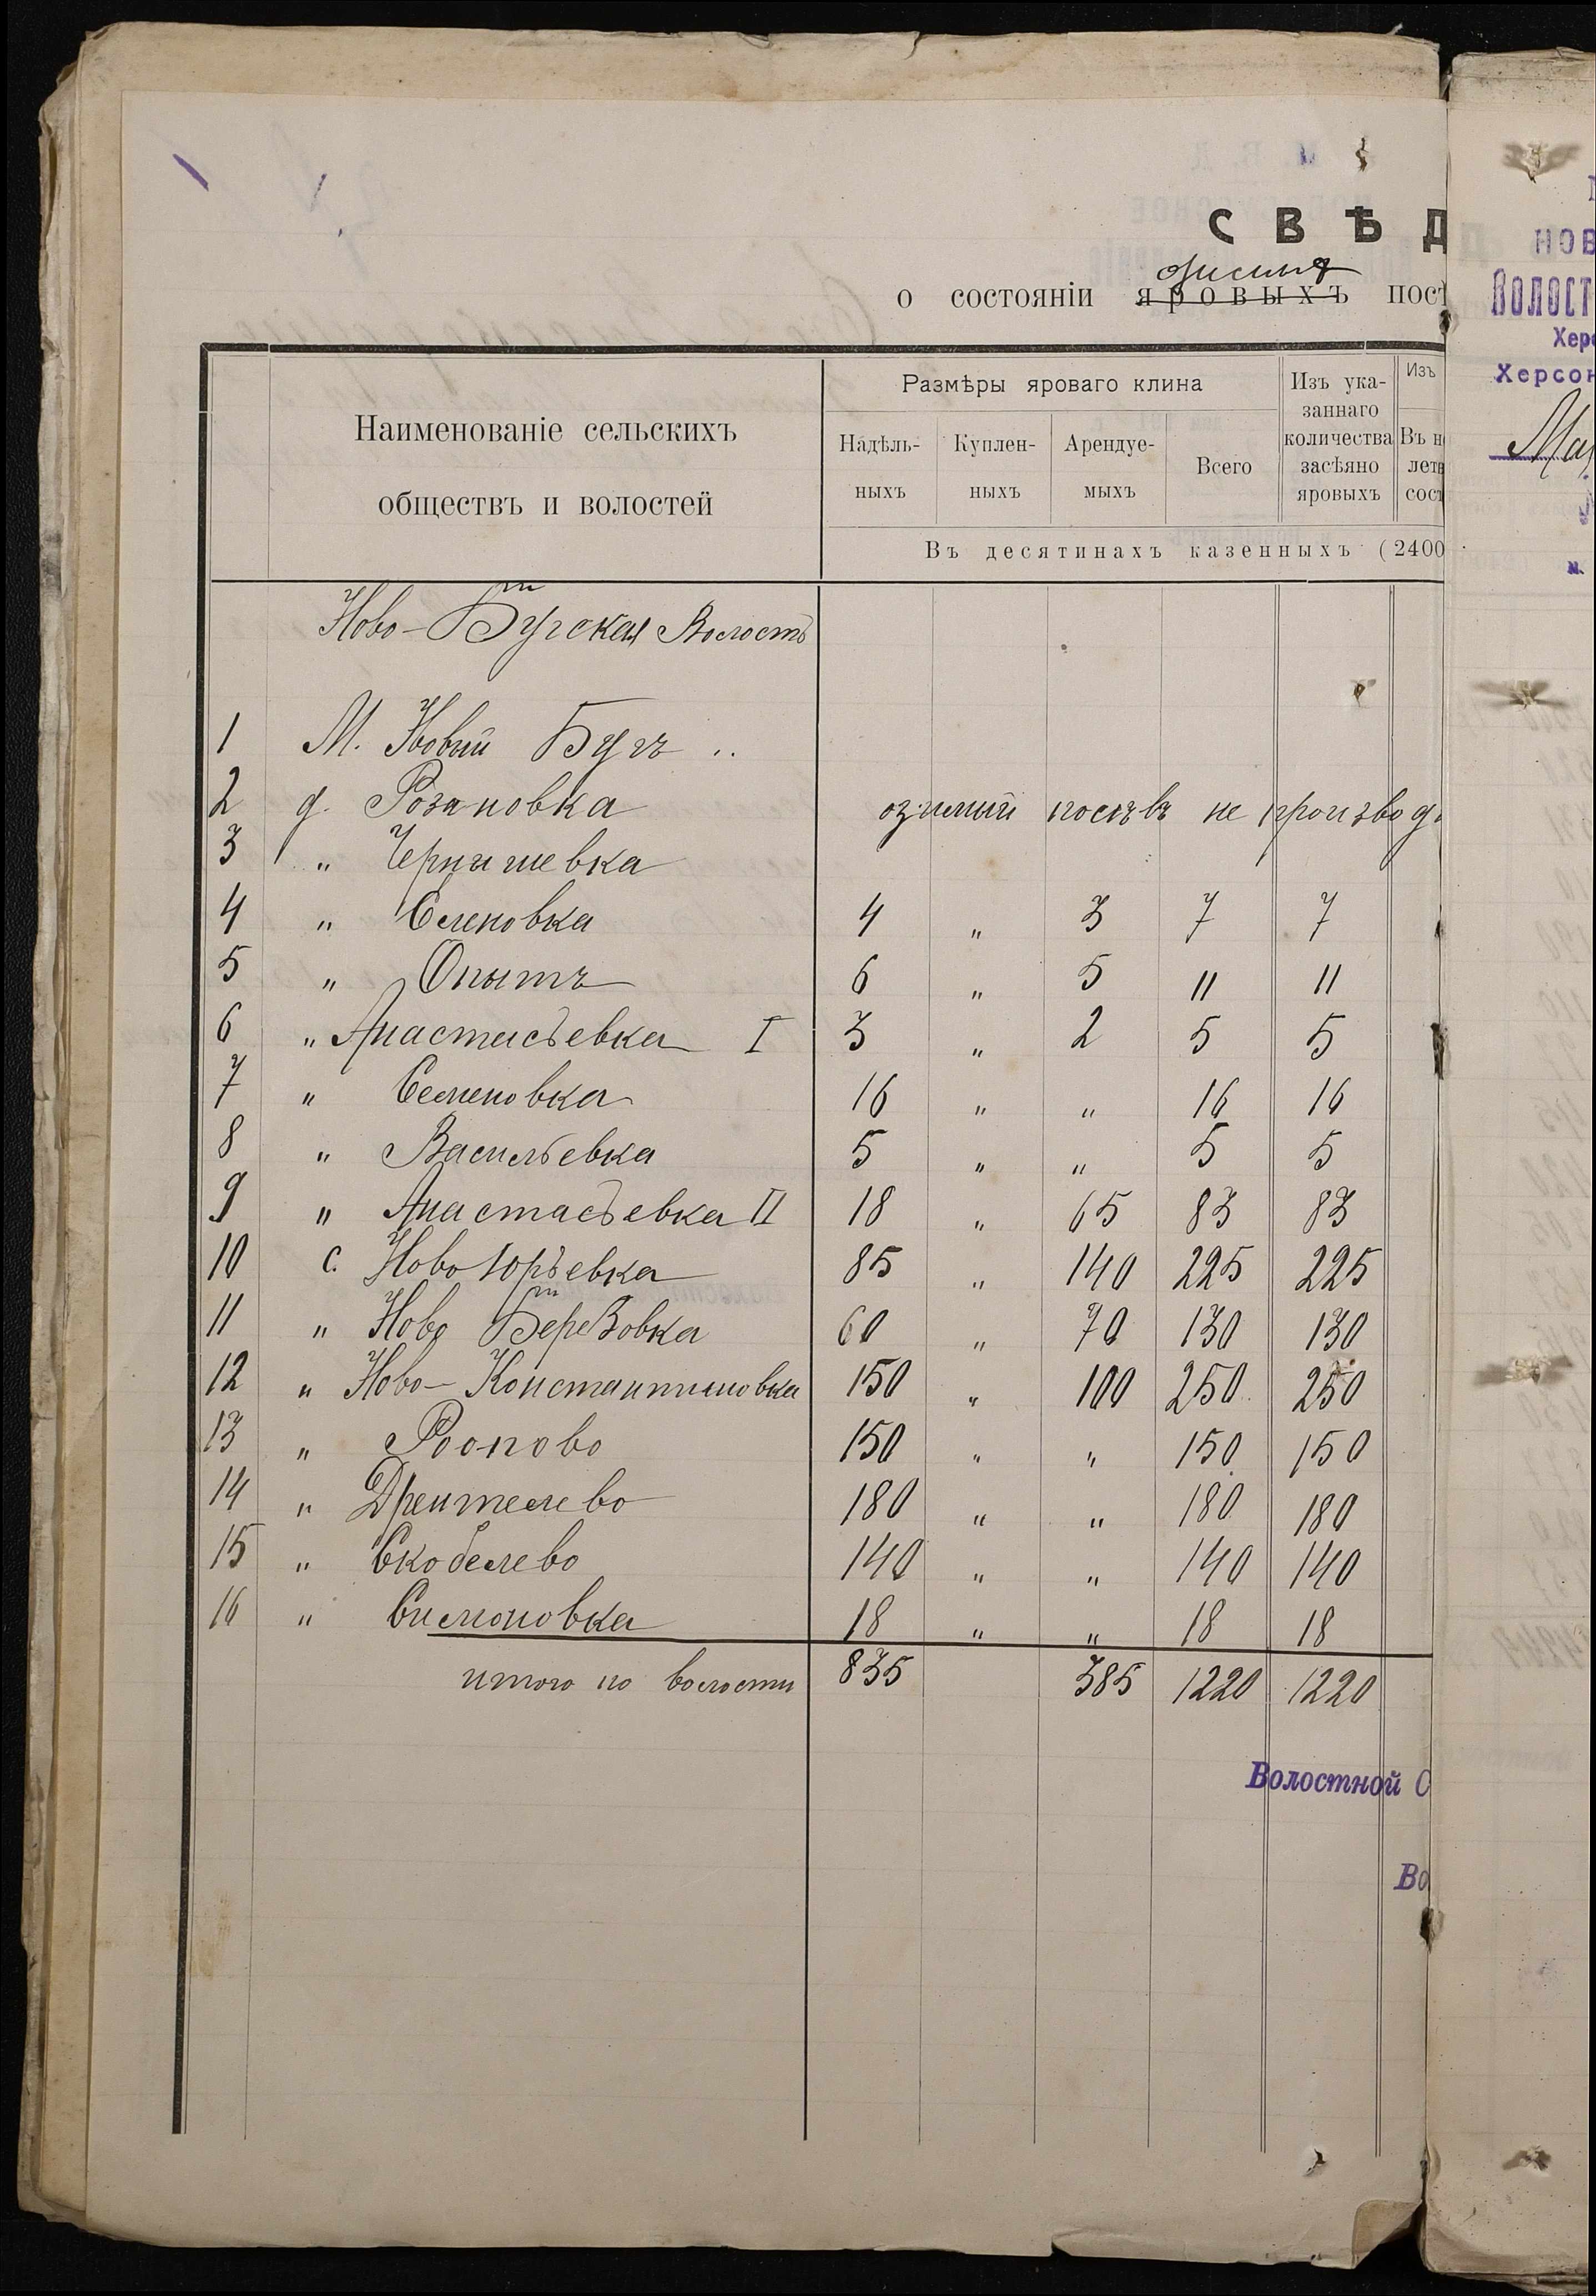 СВѢД
озимыхъ
о состояніи яровыхъ посѣ
Наименованіе сельскихъ
обществъ и волостей
Размѣры яроваго клина
Надѣль-
ныхъ
Куплен-
ныхъ
Арендуе-
мыхъ
Всего
Изъ ука-
заннаго
количества
засѣяно
яровыхъ
Изъ
Въ н
летв
сост
Въ десятинахъ казенныхъ (2400
Ново-Бугская Волость
1 М. Новый Бугъ ..
2 д. Розановка озимый посѣвъ не производи
3 " Чернишевка
4 " Еленовка 4 " 3 7 7
5 " Опытъ 6 " 5 11 11
6 " Анастасьевка I 3 " 2 5 5
7 " Семеновка 16 " " 16 16
8 " Васильевка 5 " " 5 5
9 " Анастасьевка II 18 " 65 83 83
10 с. Ново Юрьевка 85 " 140 225 225
11 " Ново Березовка 60 " 70 130 130
12 " Ново-Константиновка 150 " 100 250 250
13 " Роопово 150 " " 150 150
14 " Дрентелево 180 " " 180 180
15 " Скобелево 140 " " 140 140
16 " Симоновка 18 " " 18 18
итого по волости 835 385 1220 1220
Волостной С
Во
НОВ
ВОЛОСТ
Хер
Херсон
Ма